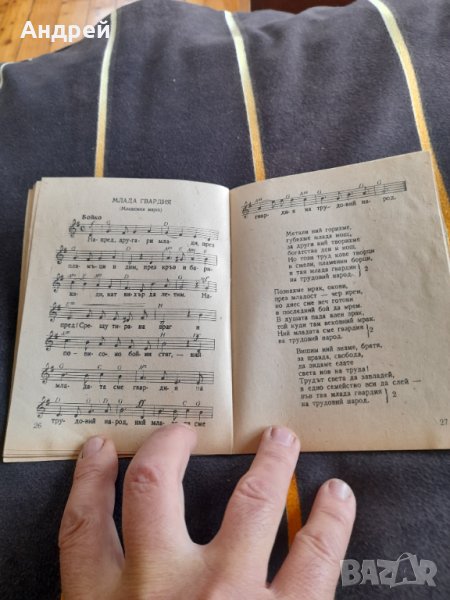 Андрей
МЛАДА ГВАРДИЯ
(Младежки марш)
Бойко
На - пред, дру - га - ри мла - ди, през
пла - мъ - ци и дим, през кръв и ба - ри -
ка - ди, кат ви - хър да ле - тим. На -
пред! Сре - щу ти - ра - на враг и
по - ви - со - ко бой - ни - я стяг, - ний
мла - да - те сме гвар - ди - я на
тру - до - вий на - род, ний мла - да - та сме
26
гвар - ди - я на тру - до - вий на - род.
Метали ний горихме,
губехме млада мощ,
за други ний творихме
богатства ден и нощ.
Но този труд кове творци
и смели, пламенни борци,
и таз млада гвардия
на трудовий народ. 2
Познахме мрак, окови,
през младост — чер кревя,
но днес сме веч готови
в последний бой да мрем.
В душата пада ален зрак,
той куди там вековний мрак.
Ний младата сме гвардия
на трудовий народ. 2
Викаме ний знаме, братя,
за правда, свобода,
да видаме елате
света нов на труда!
Трудът света да завладей,
в едно семейство вси да слей —
във таз млада гвардия
на трудовий народ. 2
27
BAZAR